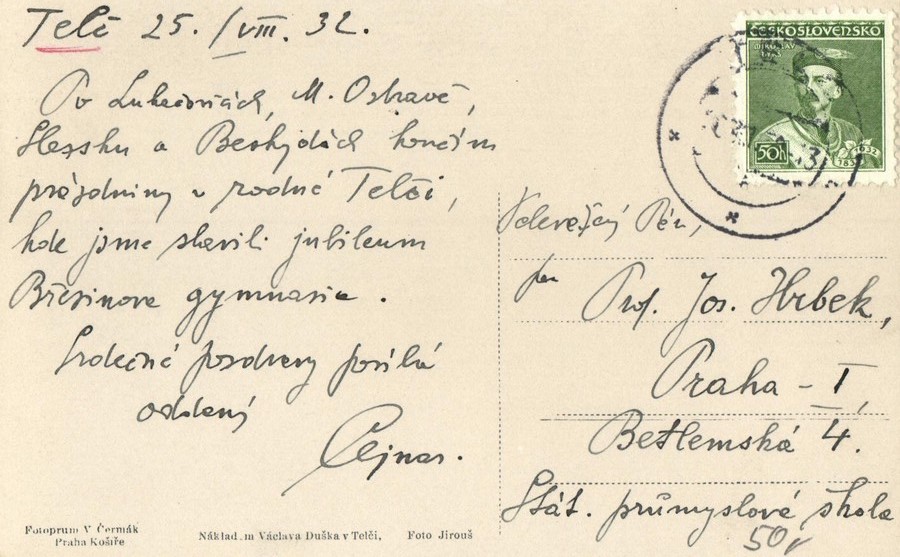 Telč 25./VIII. 32.
Po Luhačovicích, M. Ostravě,
Slezsku a Beskydách končím
prázdniny v rodné Telči,
kde jsme slavili jubileum
Březinova gymnasia.
Srdečné pozdravy posílá
oddaný
Cejnar.
ČESKOSLOVENSKO
MIROSLAV
50h
1832 1932
Velevážený Pán,
pan
Prof. Jos. Hrbek,
Praha - I,
Betlemská 4.
Stát. průmyslová škola
50v
Fotoprum V. Čermák
Praha Košíře
Náklad.m Václava Duška v Telči, Foto Jirouš